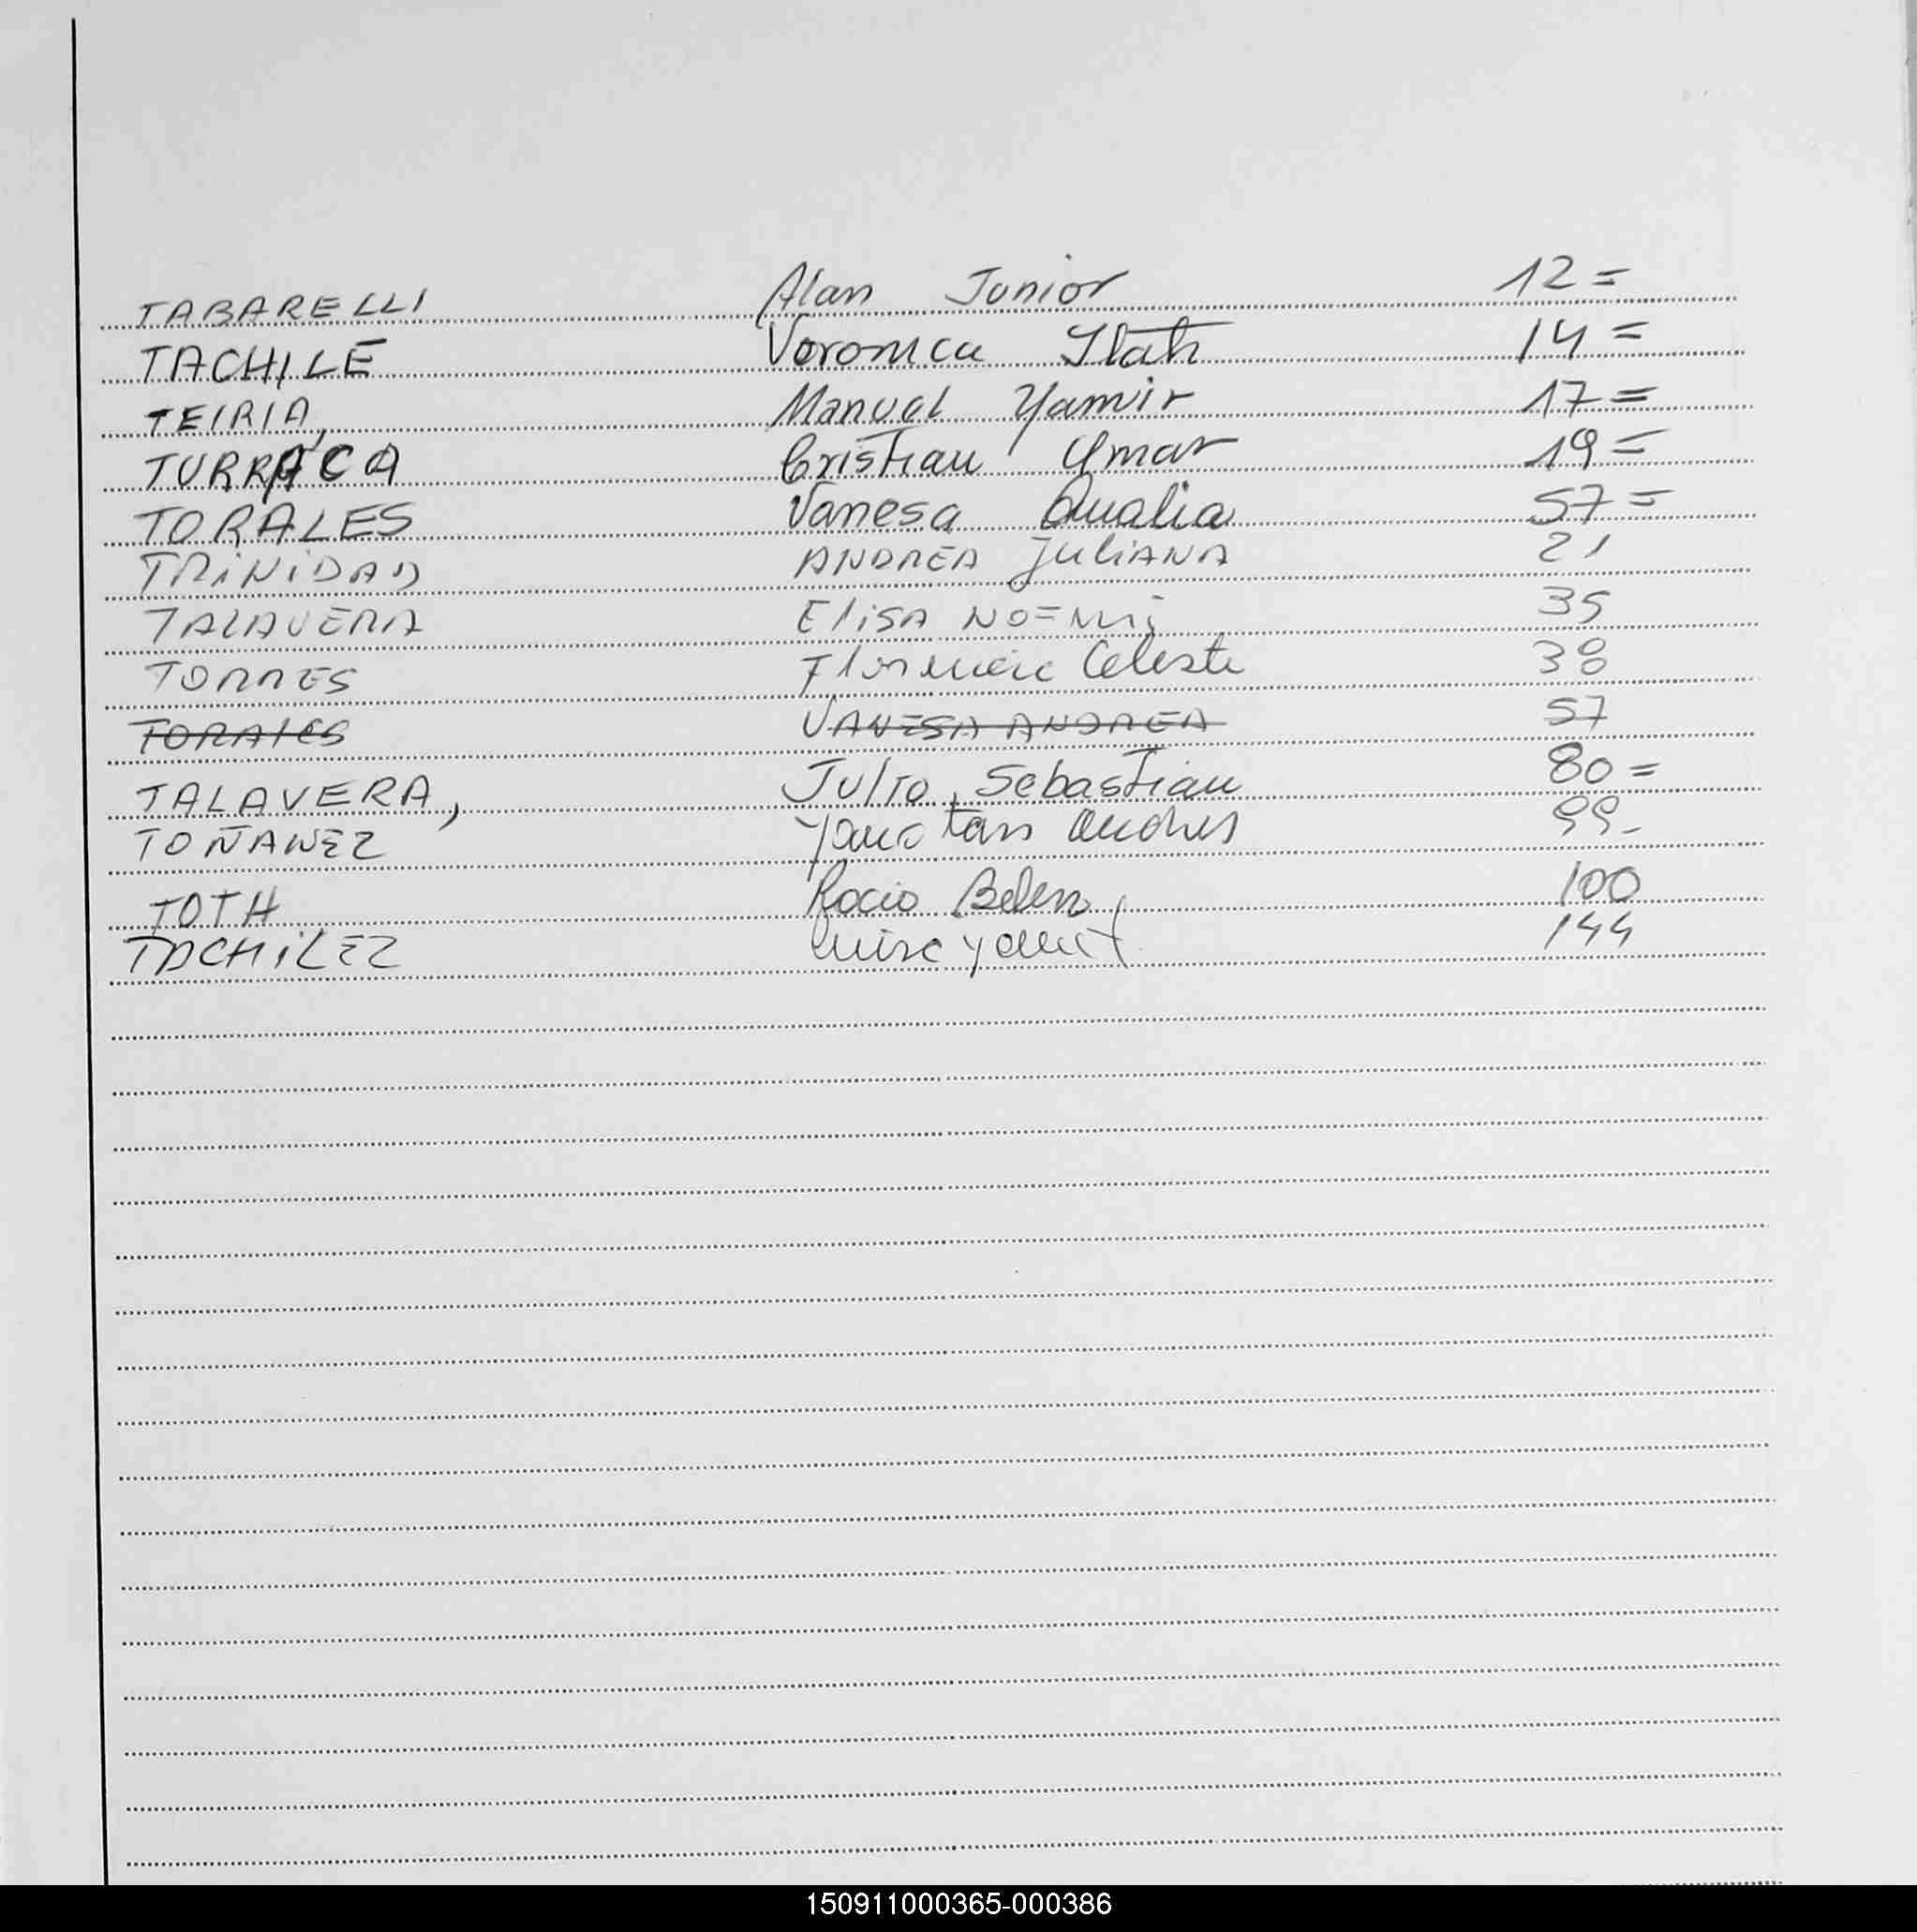 TABARELLI Alan Junior 12=
TACHILE Veronica Itati 14=
TEIRIA, Manuel Yamir 17=
TURRACA Cristian Omar 19=
TORALES Vanesa Analia 57=
TRINIDAD ANDREA JULIANA 21
TALAVERA ELISA NOEMI 35
TORRES Florencia Celeste 38
TORALES VANESA ANDREA 57
TALAVERA, Julio Sebastian 80=
TOÑANEZ Andres 99-
TOTH Rocio Belen 100
TACHILEZ 144
150911000365-000386